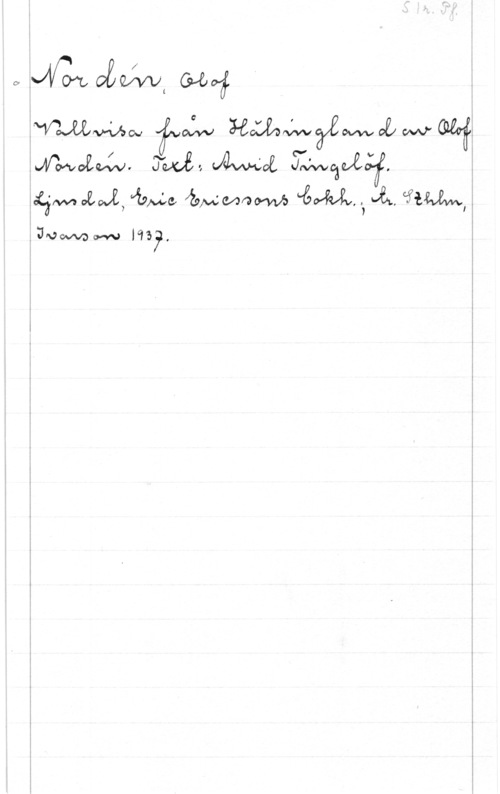 S 1 r. Pf.
Nordén, Olof
Vallvisa från Hälsingland av Olof
Nordén. Text: Arvid Tingelöf.
Ljusdal, Eric Ericssons bokh.; tr. Sthlm,
Ivarson 1937.